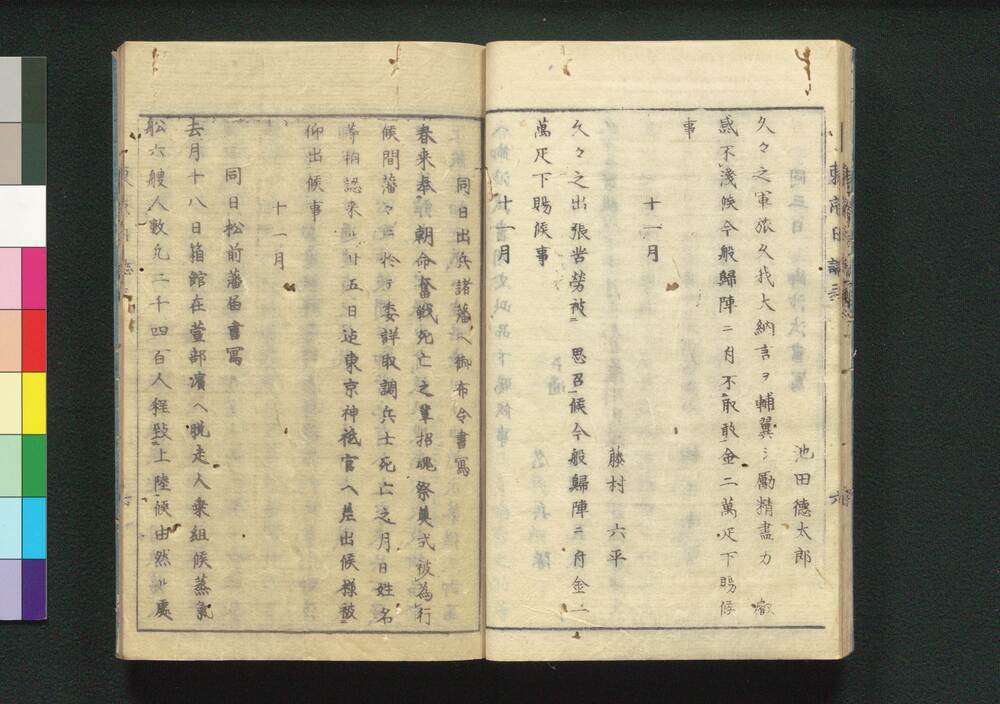 東京日誌
六
池田徳太郎
久々之軍旅久我大納言ヲ輔翼シ励精盡力　叡
感不淺候今般歸陣ニ付不取敢金二萬疋下賜候
事
十一月
藤村　六平
久々之出張苦勞被　思召候今般歸陣ニ付金一
萬疋下賜候事
十一月
同日出兵諸藩ヘ御布令書寫
春来奉　朝命奮戰死亡之輩招魂祭奠式被為行
候間藩々ニ於テ委詳取調兵士死亡之月日姓名
等相認来ル廿五日迠東京神祇官ヘ差出候様被
仰出候事
十一月
同日松前藩届書寫
去月十八日箱館在萱部濱ヘ脱走人衆組候蒸氣
舩六艘人數凡二千四百人程致上陸候由然ル處